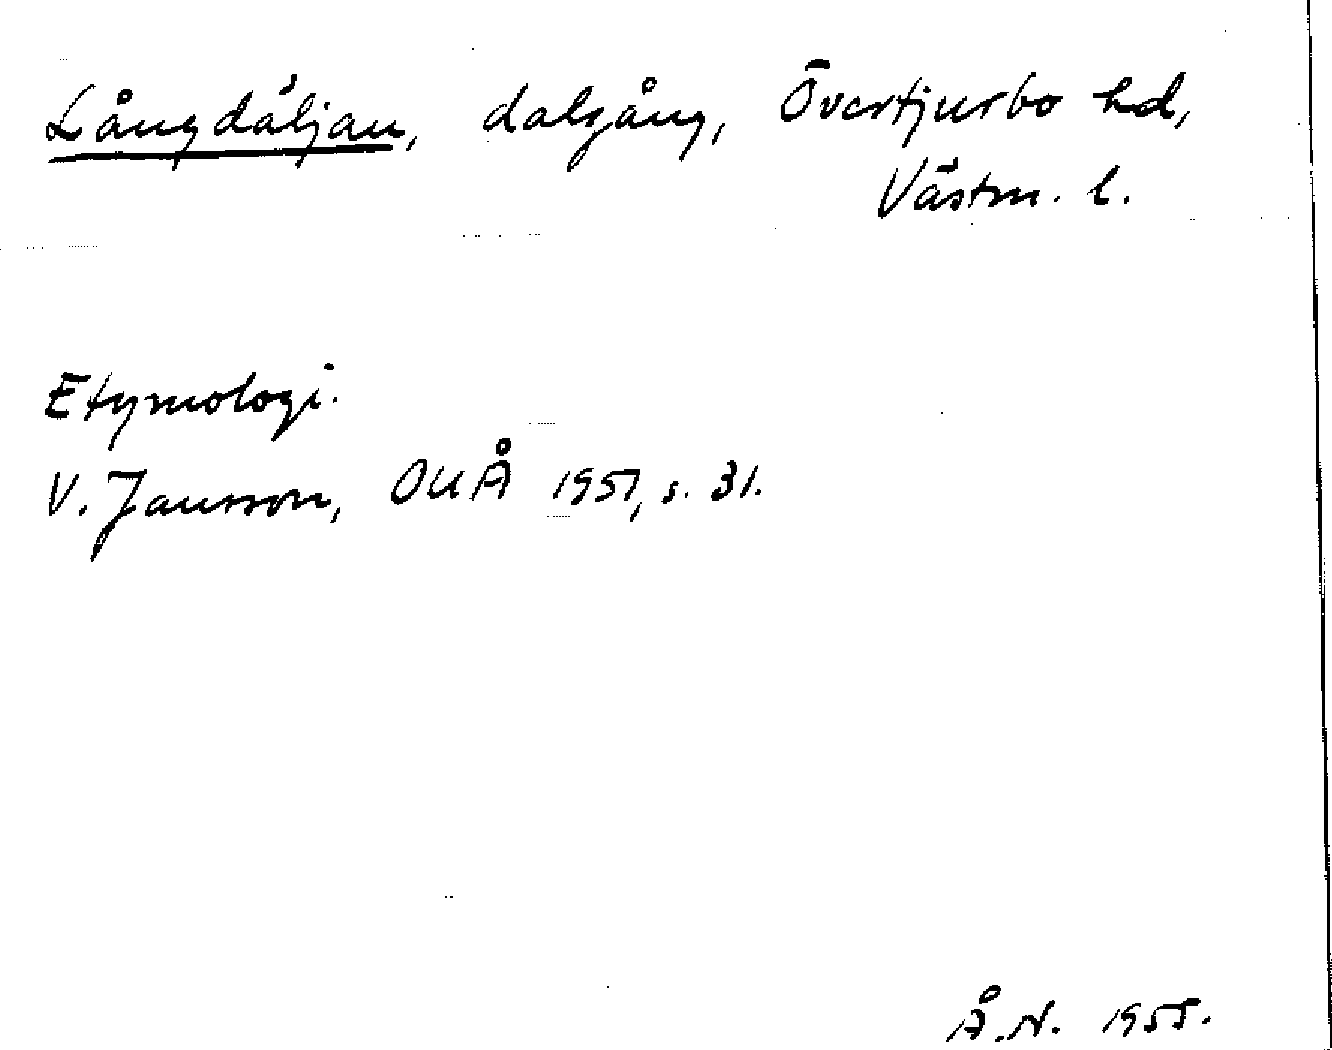 Långdäljan, dalgång, Övertjurbo hd,
Västm. l.
Etymologi.
V. Jansson, OUÅ 1951, s. 31.
Å.N. 1955.